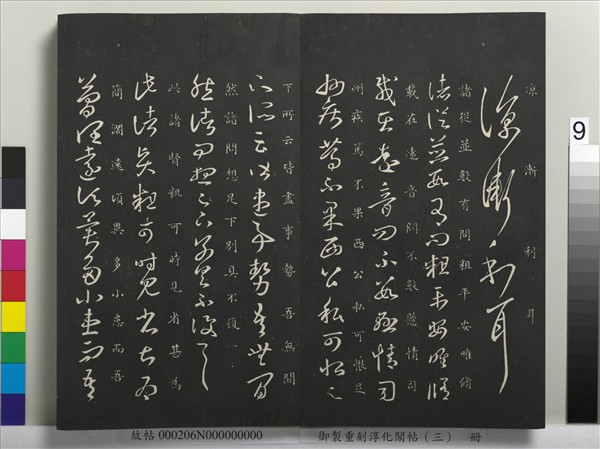 涼漸利耳
涼漸利耳
諸從並數有問粗平安唯脩
諸從並數有問粗平安唯脩
載在遠音問不數懸情司
載在遠音問不數懸情司
州疾篤不果西公私可恨足
州疾篤不果西公私可恨足
下所云時盡事勢吾無間
下所云皆盡事勢吾無間
然諸問想足下別具不復一一
然諸問想足下別具不復一一
此諸賢粗可時見省甚為
此諸賢粗可時見省甚為
簡闊遠頃異多小患而吾
簡闊遠頃異多小患而吾
故帖 000206N000000000 御製重刻淳化閣帖（三） 冊
9